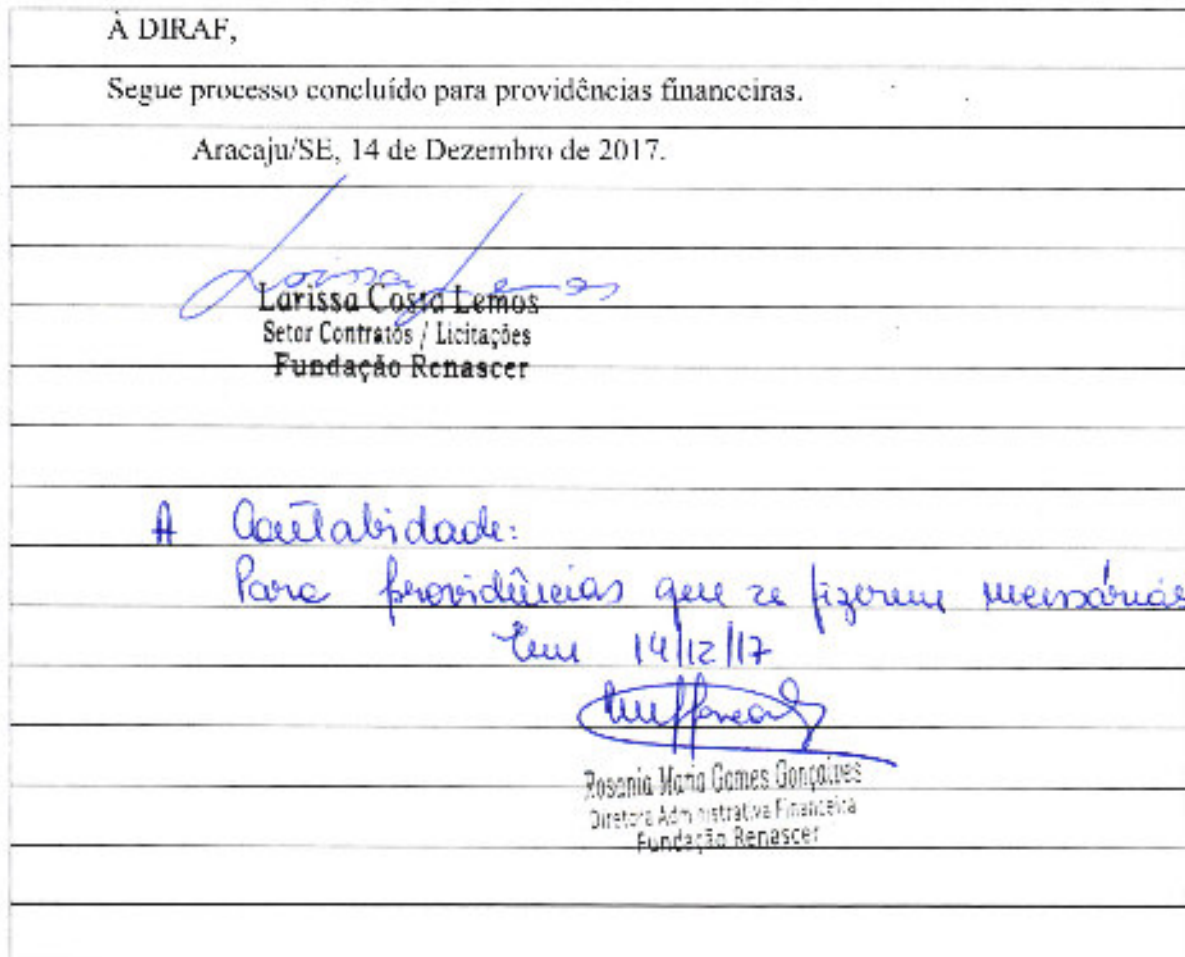 À DIRAF,
Segue processo concluído para providências financeiras.
Aracaju/SE, 14 de Dezembro de 2017.
Larissa Lemos
Larissa Costa Lemos
Setor Contratos / Licitações
Fundação Renascer
A Contabidade:
Para providências que se fizerem necessárias
Em 14/12/17
Rosania Maria Gomes Gonçalves
Diretora Administrativa Financeira
Fundação Renascer